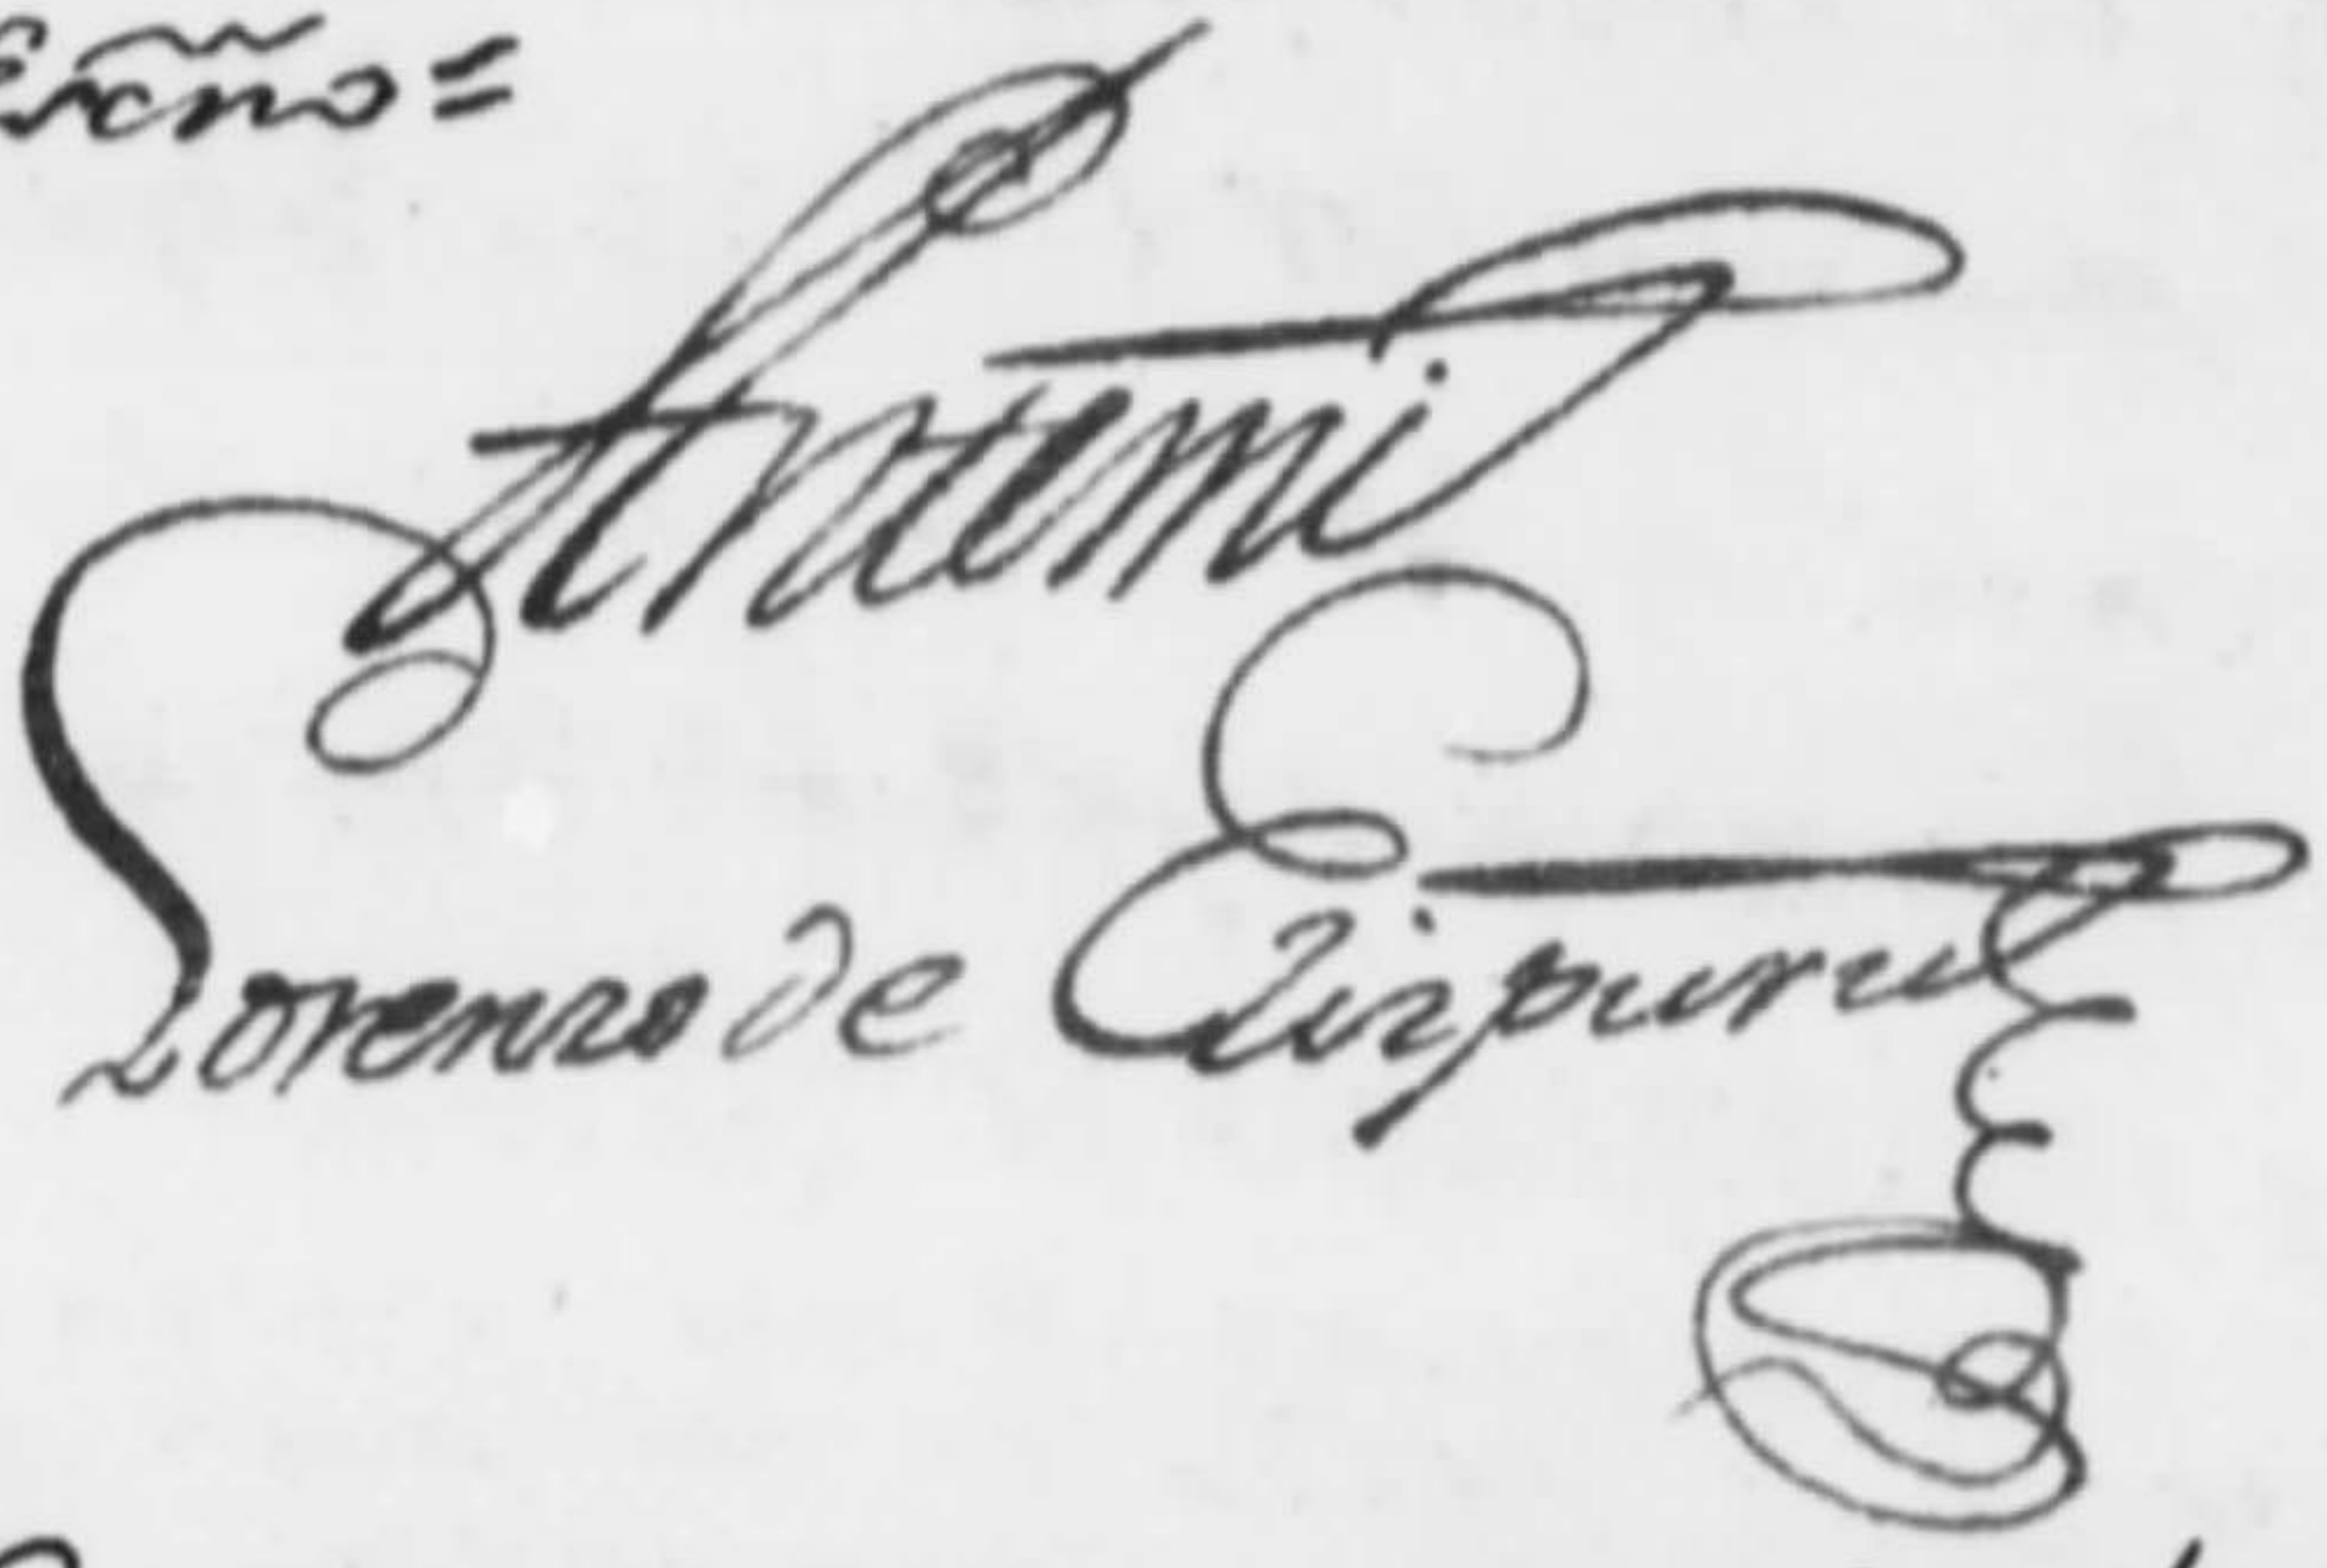 Antemi
Lorenzo de Eizpuru